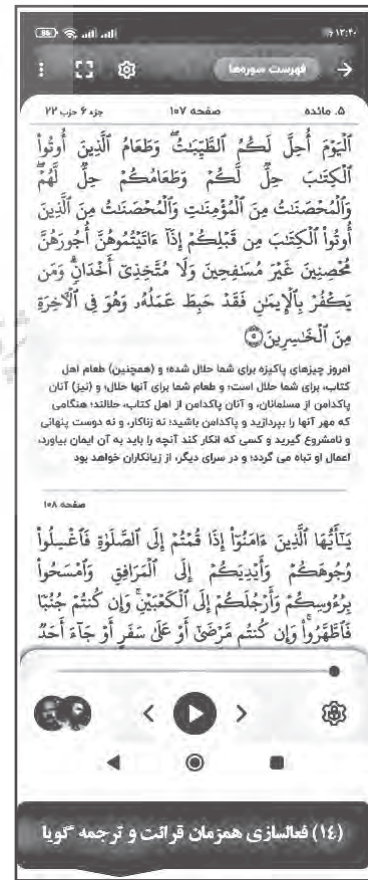 ۱۲:۲۰
فهرست سوره‌ها
۵. مائده صفحه ۱۰۷ جزء ۶ حزب ۲۲
ٱلۡيَوۡمَ أُحِلَّ لَكُمُ ٱلطَّيِّبَٰتُۖ وَطَعَامُ ٱلَّذِينَ أُوتُواْ
ٱلۡكِتَٰبَ حِلّٞ لَّكُمۡ وَطَعَامُكُمۡ حِلّٞ لَّهُمۡۖ
وَٱلۡمُحۡصَنَٰتُ مِنَ ٱلۡمُؤۡمِنَٰتِ وَٱلۡمُحۡصَنَٰتُ مِنَ ٱلَّذِينَ
أُوتُواْ ٱلۡكِتَٰبَ مِن قَبۡلِكُمۡ إِذَآ ءَاتَيۡتُمُوهُنَّ أُجُورَهُنَّ
مُحۡصِنِينَ غَيۡرَ مُسَٰفِحِينَ وَلَا مُتَّخِذِيٓ أَخۡدَانٖۗ وَمَن
يَكۡفُرۡ بِٱلۡإِيمَٰنِ فَقَدۡ حَبِطَ عَمَلُهُۥ وَهُوَ فِي ٱلۡأٓخِرَةِ
مِنَ ٱلۡخَٰسِرِينَ ۵
امروز چیزهای پاکیزه برای شما حلال شده؛ و (همچنین) طعام اهل
کتاب، برای شما حلال است؛ و طعام شما برای آنها حلال؛ و (نیز) آنان
پاکدامن از مسلمانان، و آنان پاکدامن از اهل کتاب، حلالند؛ هنگامی
که مهر آنها را بپردازید و پاکدامن باشید؛ نه زناکار، و نه دوست پنهانی
و نامشروع گیرید و کسی که انکار کند آنچه را باید به آن ایمان بیاورد،
اعمال او تباه می گردد؛ و در سرای دیگر، از زیانکاران خواهد بود
صفحه ۱۰۸
يَٰٓأَيُّهَا ٱلَّذِينَ ءَامَنُوٓاْ إِذَا قُمۡتُمۡ إِلَى ٱلصَّلَوٰةِ فَٱغۡسِلُواْ
وُجُوهَكُمۡ وَأَيۡدِيَكُمۡ إِلَى ٱلۡمَرَافِقِ وَٱمۡسَحُواْ
بِرُءُوسِكُمۡ وَأَرۡجُلَكُمۡ إِلَى ٱلۡكَعۡبَيۡنِۚ وَإِن كُنتُمۡ جُنُبٗا
فَٱطَّهَّرُواْۚ وَإِن كُنتُم مَّرۡضَىٰٓ أَوۡ عَلَىٰ سَفَرٍ أَوۡ جَآءَ أَحَدٞ
(١٤) فعالسازی همزمان قرائت و ترجمه گویا